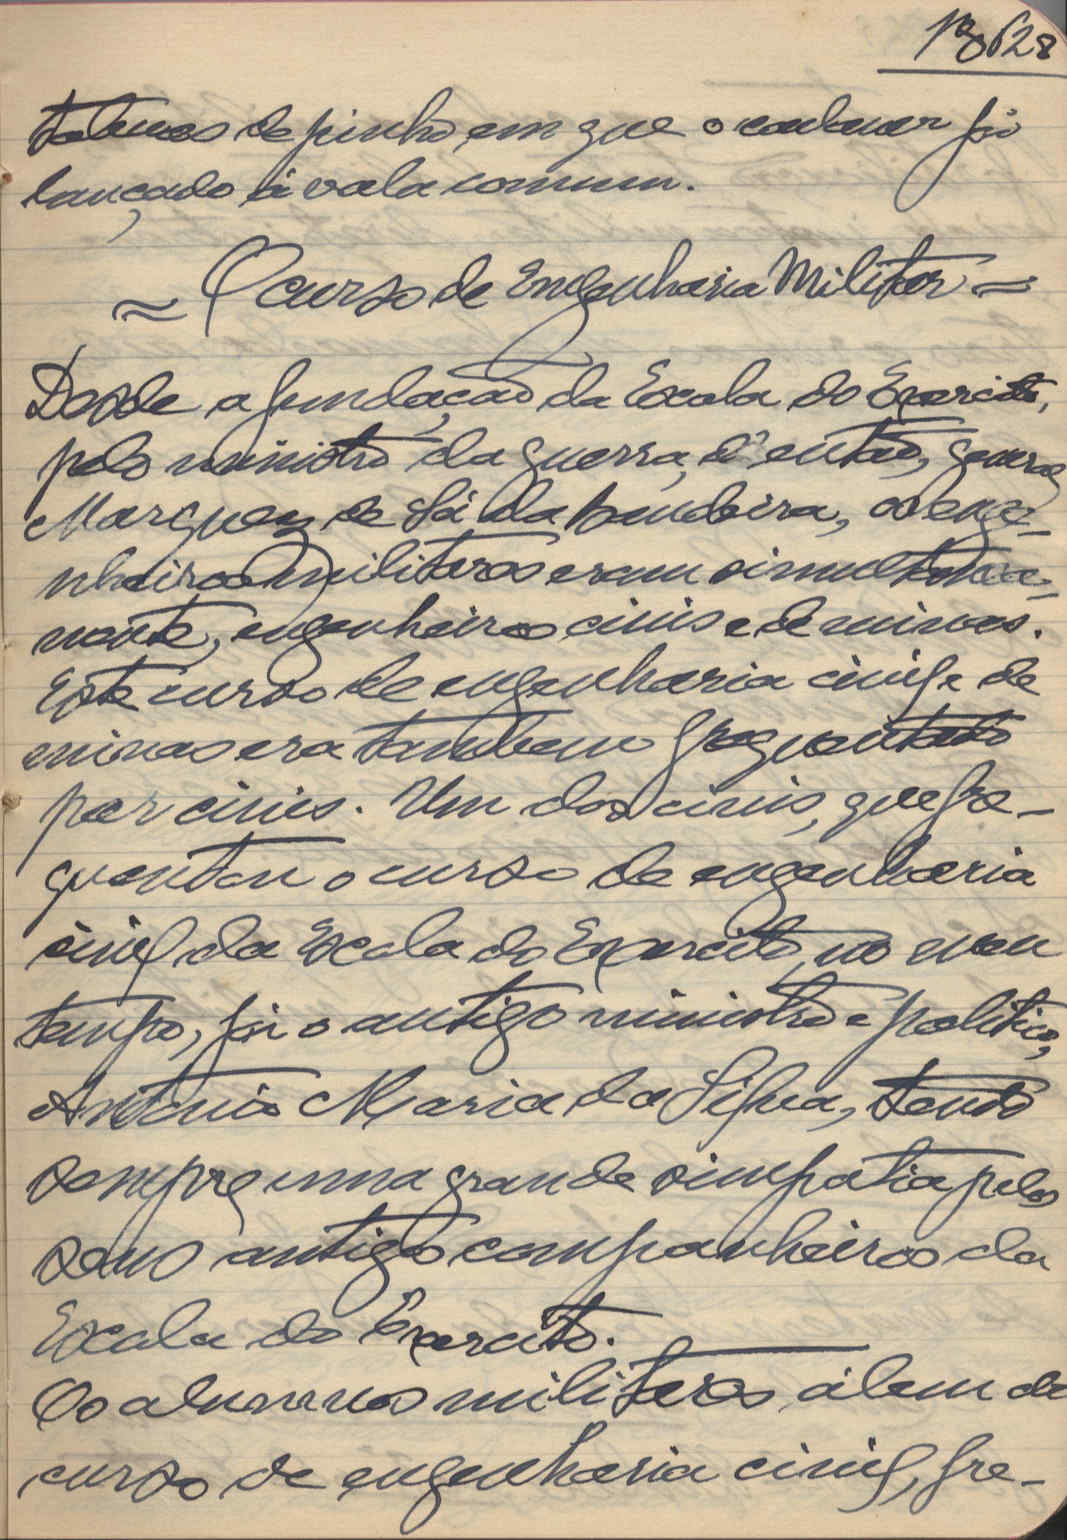 13628
taboas de pinho, em que o cadaver foi
lançado á vala comum.
= O curso de Engenharia Militar =
Desde a fundação da Escola do Exercito,
pelo ministro da guerra, d'então, general
Marquez de Sá da Bandeira, os enge-
nheiros militares eram simultanea-
mente, engenheiros civis e de minas.
Este curso de engenharia civil e de
minas era tambem frequentado
por civis. Um dos civis, que fre-
quentou o curso de engenharia
civil da Escola do Exercito, no meu
tempo, foi o antigo ministro e politico,
Antonio Maria da Silva, tendo
sempre uma grande simpatia pelos
seus antigos companheiros da
Escola do Exercito.
Os alunos militares, álem do
curso de engenharia civil, fre-